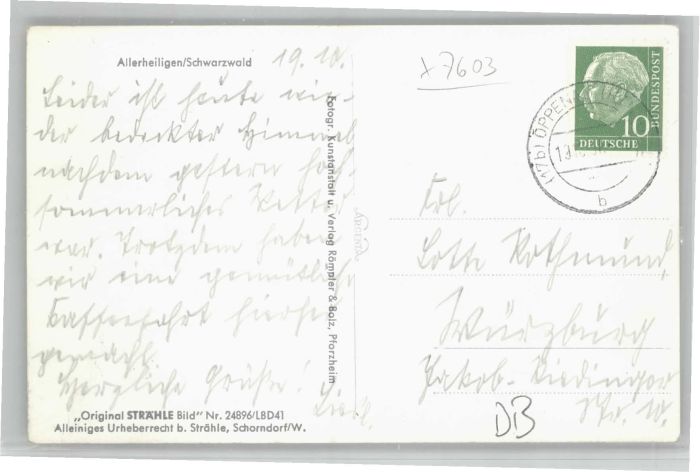 Allerheiligen/Schwarzwald
19.10.
Leider ist heute wie-
der bedeckter Himmel
nachdem gestern hoch-
sommerliches Wetter
war. Trotzdem haben
wir eine gemütliche
Kaffeefahrt hierher
gemacht.
Herzliche Grüße!
„Original STRÄHLE Bild" Nr. 24896/LBD41
Alleiniges Urheberrecht b. Strähle, Schorndorf/W.
Fotogr. Kunstanstalt u. Verlag Römpler & Bolz, Pforzheim
x7603
(17b) OPPENAU
b
10
DEUTSCHE
BUNDESPOST
Frl.
Lotte Rothmund,
Würzburg
Jakob-Riedinger
Str. 10.
DB